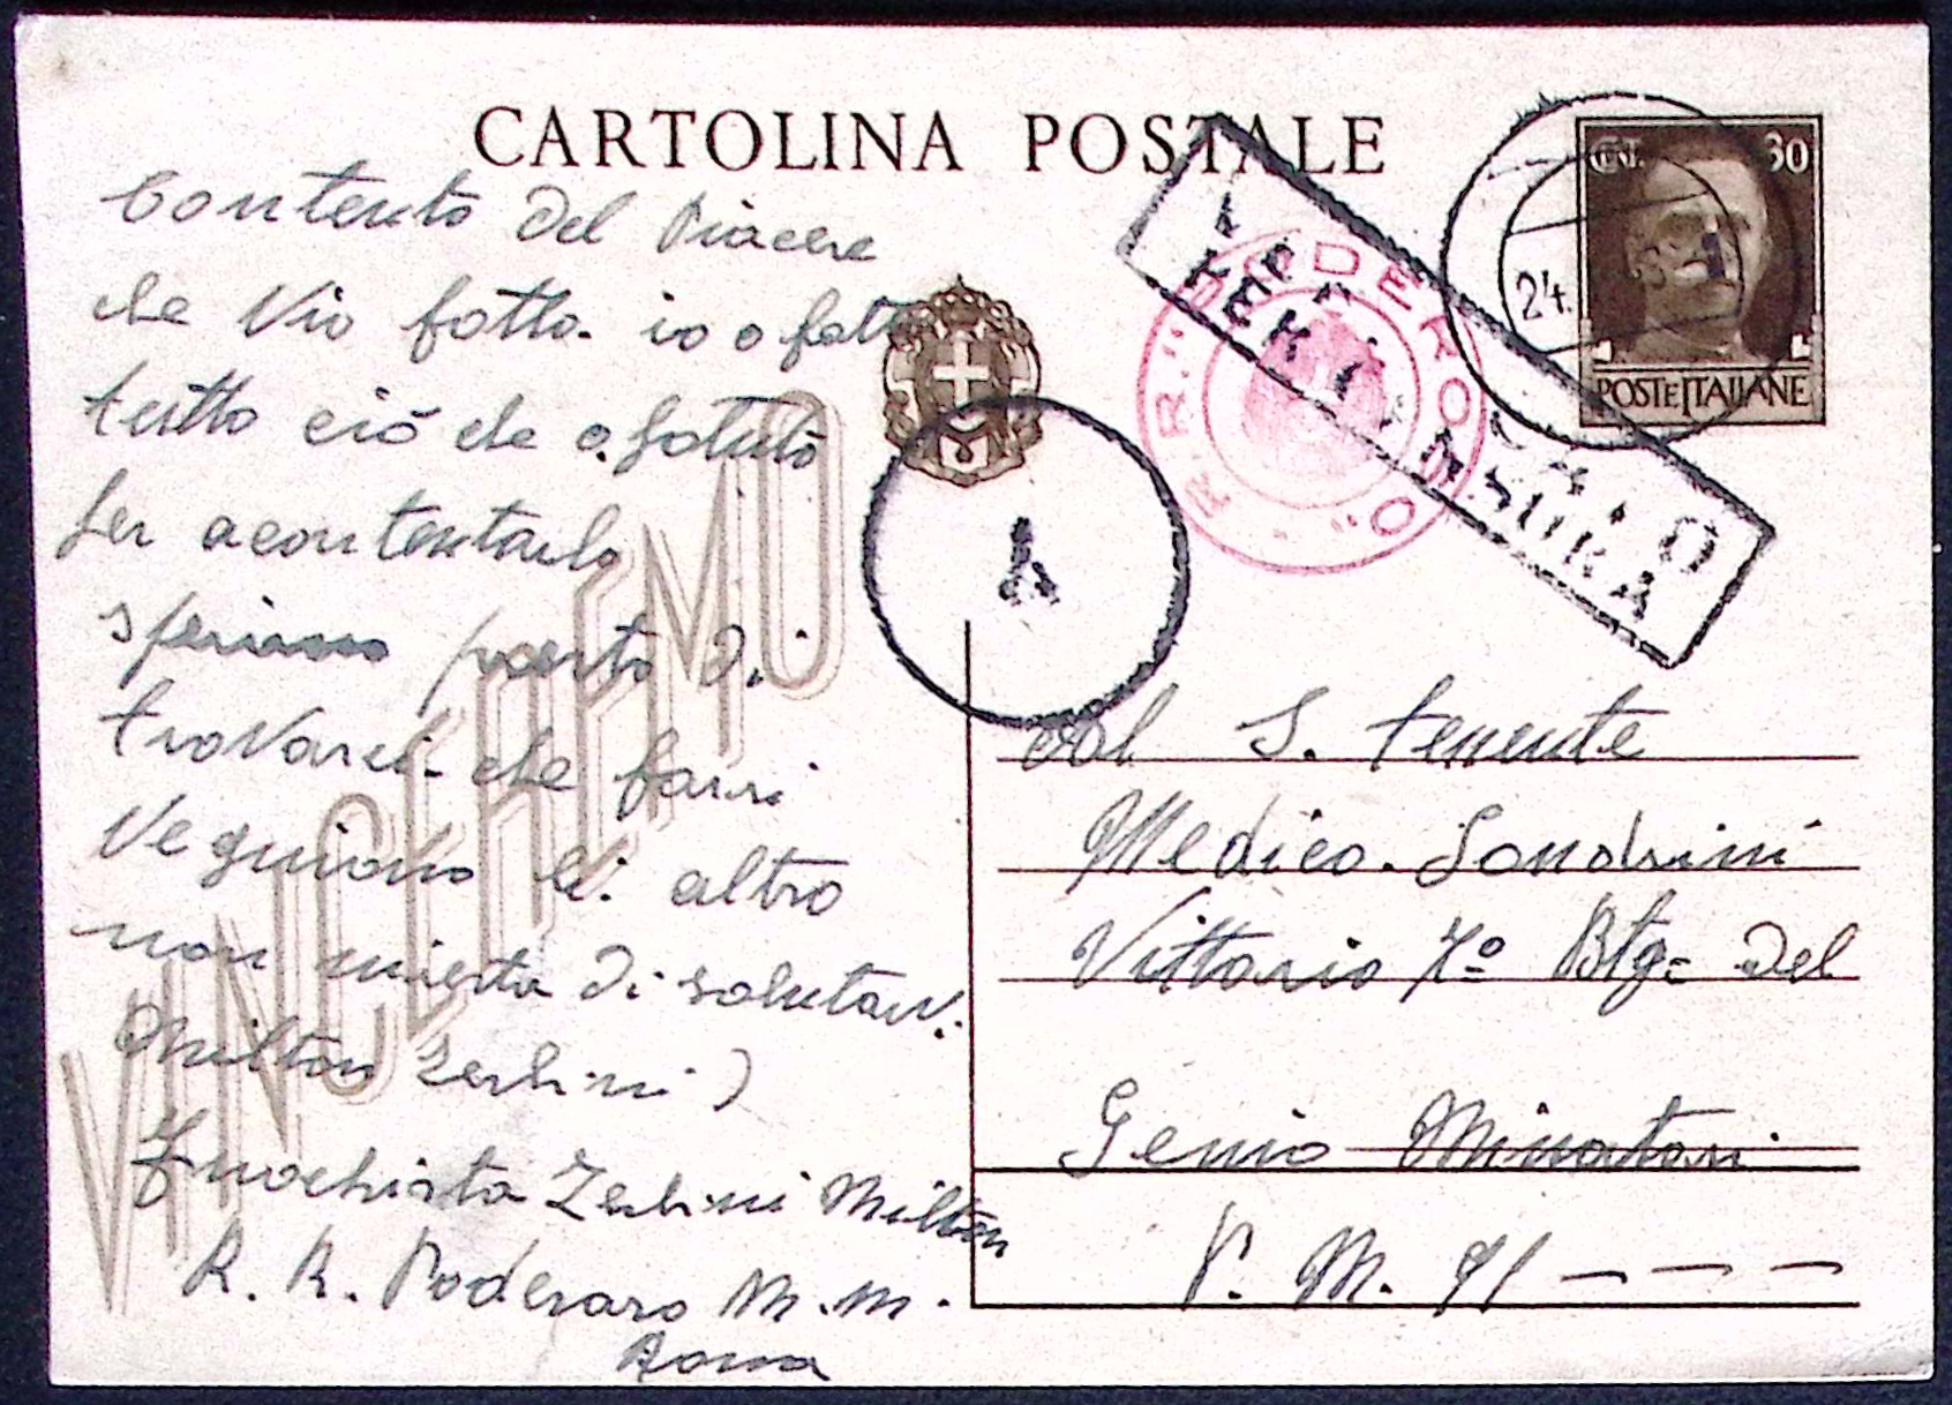 CARTOLINA POSTALE
Cent. 30
POSTE ITALIANE
VERIFICATO
PER CENSURA
R.R. "PODEROSO"
24.
VINCEREMO
Contento del Piacere
che Vio fatto. io o fatto
tutto ciò che o potuto
per acontentarlo
speriamo presto di
trovarci che farri
Veguiono li. altro
non miresta di salutarv.
Milton Zerbini)
Fuochista Zerbini Milton
R. R. Poderoso M. M.
Roma
al S. tenente
Medico. Sondrini
Vittorio 7º Btg= del
Genio Minatori
P. M. 91 – – –